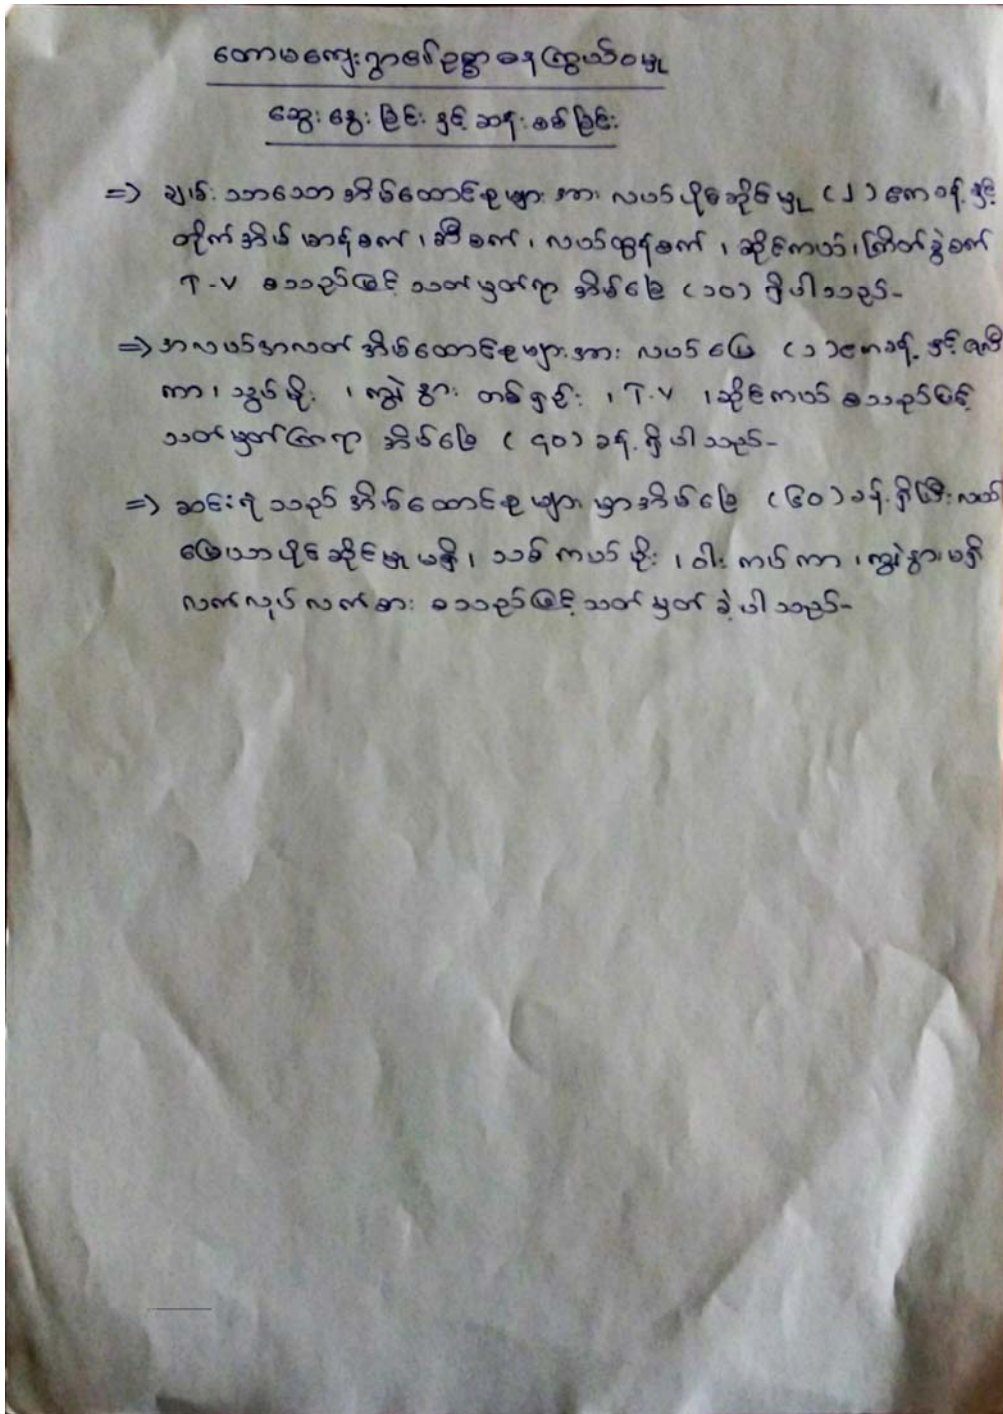 တောမကျေးရွာ၏ဥစ္စာဓနကြွယ်ဝမှု
ဆွေးနွေးခြင်းနှင့်ဆန်းစစ်ခြင်း
=> ချမ်းသာသော အိမ်ထောင်စုများအား လယ်ပိုင်ဆိုင်မှု (၂) ဧကခန့်နှင့်
တိုက်အိမ် ၊ ဆီစက် ၊ လယ်ထွန်စက် ၊ ဆိုင်ကယ် ၊ ကြိတ်ခွဲစက်
T-V စသည်ဖြင့် သတ်မှတ်ရာ အိမ်ခြေ (၁၀) ရှိပါသည်-
=> အလယ်အလတ် အိမ်ထောင်စုများအား လယ်မြေ (၁) ဧကခန့်နှင့်
ကာ ၊ သွပ်မိုး ၊ ကျွဲနွား တစ်ရှဉ်း ၊ T.V ၊ ဆိုင်ကယ် စသည်ဖြင့်
သတ်မှတ်ကြရာ အိမ်ခြေ (၄၀) ခန့်ရှိပါသည်-
=> ဆင်းရဲသည့် အိမ်ထောင်စုများမှာ အိမ်ခြေ (၆၀) ခန့်ရှိပြီး လယ်
မြေယာပိုင်ဆိုင်မှုမရှိ ၊ သစ်ကယ်မိုး ၊ ဝါးကပ်ကာ ၊ ကျွဲနွားမရှိ
လက်လုပ်လက်စား စသည်ဖြင့် သတ်မှတ်ခဲ့ပါသည်-